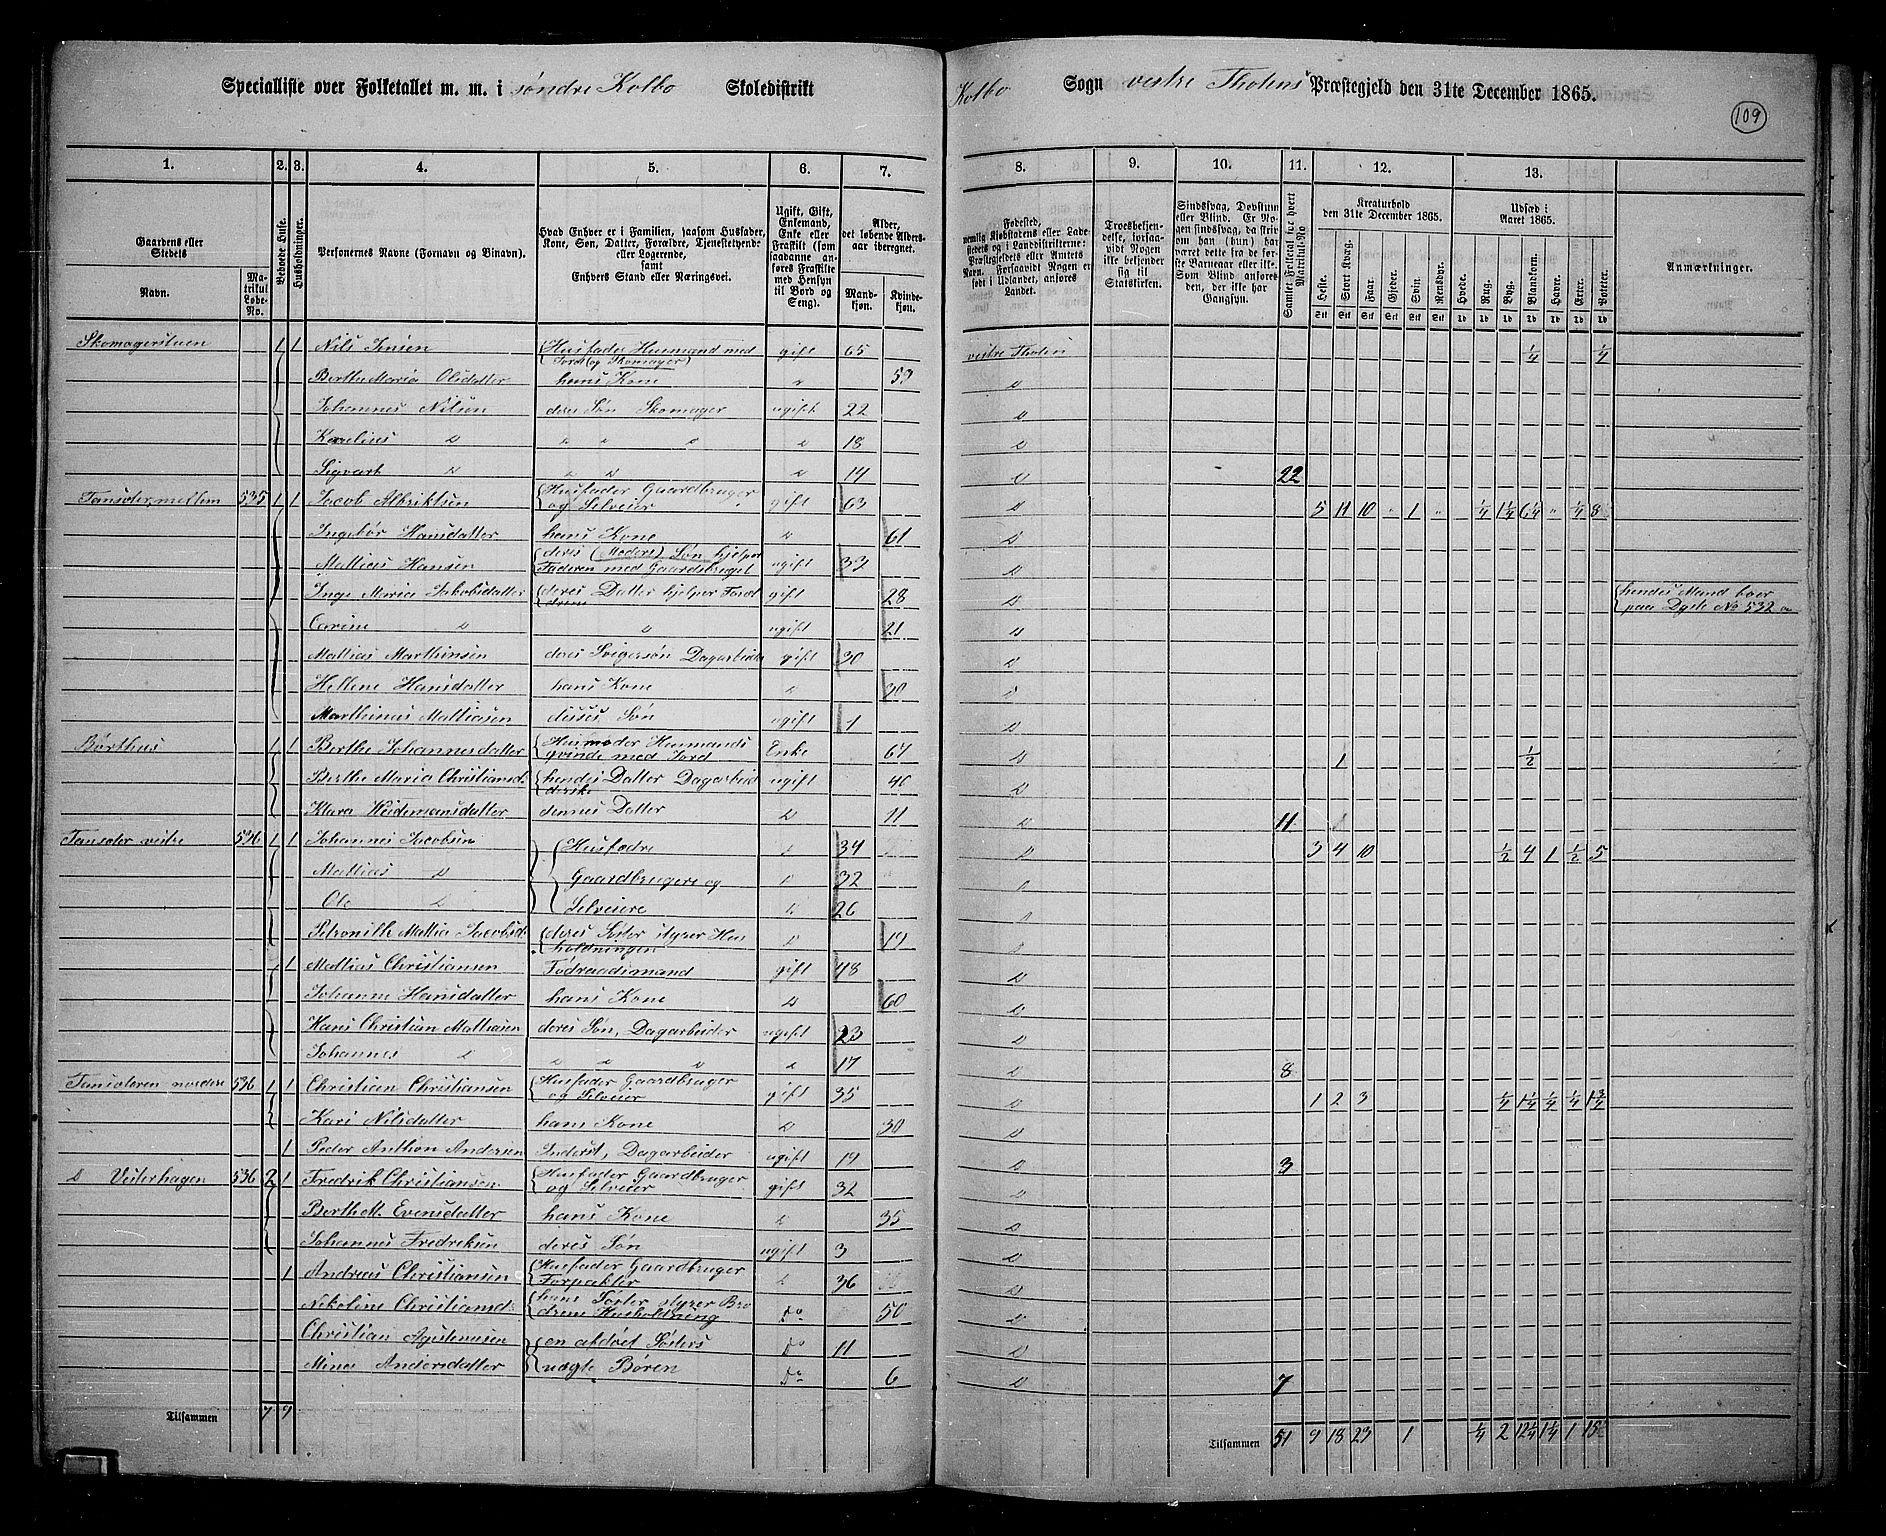 Specialliste over Folketallet m. m. i søndre Kolbo Skoledistrikt
Kolbo Sogn vestre Thotens Præstegjeld den 31te December 1865.
109
1. 2. 3. 4. 5. 6. 7. 8. 9. 10. 11. 12. 13.
Gaardens eller Stedets
Navn.
Matrikul Løbe-No.
Beboede Huse.
Husholdninger.
Personernes Navne (Fornavn og Binavn).
Hvad Enhver er i Familien, saasom Husfader, Kone, Søn, Datter, Forældre, Tjenestetyende eller Logerende, samt Enhvers Stand eller Næringsvei.
Ugift, Gift, Enkemand, Enke eller Fraskilt (som saadanne anføres Fraskilte med Hensyn til Bord og Seng).
Alder, det løbende Alders-aar iberegnet.
Mandkjøn.
Kvindekjøn.
Fødested,
Troesbekjendelse, forsaavidt Nogen ikke bekjender sig til Statskirken.
Samlet Folketal for hvert Matrikul-No
Kreaturhold den 31te December 1865.
Heste. Stort Kvæg. Faar. Gjeder. Svin. Rensdyr.
Udsæd i Aaret 1865.
Hvede. Rug. Byg. Blandkorn. Havre. Erter. Poteter.
Anmærkninger.
Skomagerstuen 1 1 Nils Jensen Husfader Husmand med Jord (og Skomager) gift 65 vestre Thoten 1/4 1/4
Berthe Maria Olsdatter hans Kone " 53 D
Johannes Nilsen deres Søn Skomager ugift 22 D
Kornelius D " " " " 18 D
Sigvart D " " " 14 D 22
Tansæter, mellem 535 1 1 Jacob Albriktsen Husfader Gaardbruger og Selveier gift 63 D 5 11 10 " 1 " 1/4 1 1/4 6 1/4 " 1/4 8
Ingebor Hansdatter hans Kone D 61 D
Mattias Hansen deres (Moders) Søn hjelper Faderen med Gaardsbruget ugift 33 D
Inge Maria Jakobsdatter deres Datter hjelper Foreldrene gift 28 D hendes Mand boer paa Dyste No 532
Carine D " ugift 21 D
Mattias Marthinsen deres Svigersøn Dagarbeider gift 30 D
Hellene Hansdatter hans Kone D 30 D
Marthinus Mattiasen disses Søn ugift 1 D
Børthus 1 1 Berthe Johannesdatter Husmoder Husmands qvinde med Jord Enke 67 D 1 1/2
Berthe Maria Christiansd. hendes Datter Dagarbeiderske ugift 40 D
Klara Heidemansdatter dennes Datter D 11 D 11
Tansæter vestre 536 1 1 Johannes Jacobsen Husfædre D 34 D 3 4 10 1/2 4 1 1/2 5
Mattias D Gaardbrugere og D 32 D
Ole D Selveiere D 26 D
Petronille Mattea Jacobsd. deres Søster styrer Husholdningen D 19 D
1 Mattias Christiansen Fødraadsmand gift 48 D
Johanne Hansdatter hans Kone D 60 D
Hans Christian Mattiasen deres Søn, Dagarbeider ugift 23 D
Johannes D " " " " 17 D 8
Tansæteren nordere 536 1 1 Christian Christiansen Husfader Gaardbruger og Selveier gift 35 D 1 2 3 1/4 1 1/4 1/4 1/4 1 3/4
Kari Nilsdatter hans Kone D 30 D
1 Peder Anthon Andersen Inderst, Dagarbeider ugift 19 D 3
D Vesterhagen 536 2 1 Fredrik Christiansen Husfader Gaardbruger og Selveier gift 32 D
Berthe M. Evensdatter hans Kone D 35 D
Johannes Fredriksen deres Søn ugift 3 D
1 Andreas Christiansen Husfader Gaardbruger Forpakter D 36 D
Nikoline Christiansd. hans Søster styrer Broderens Husholdning Do 50 D
Christian Agustenusen en afdød Søsters Do 11 D
Mina Andersdatter uægte Børen Do 6 D 7
Tilsammen 7 9
Tilsammen 51 9 18 23 1 1/4 2 12 1/4 1 1/4 1 15